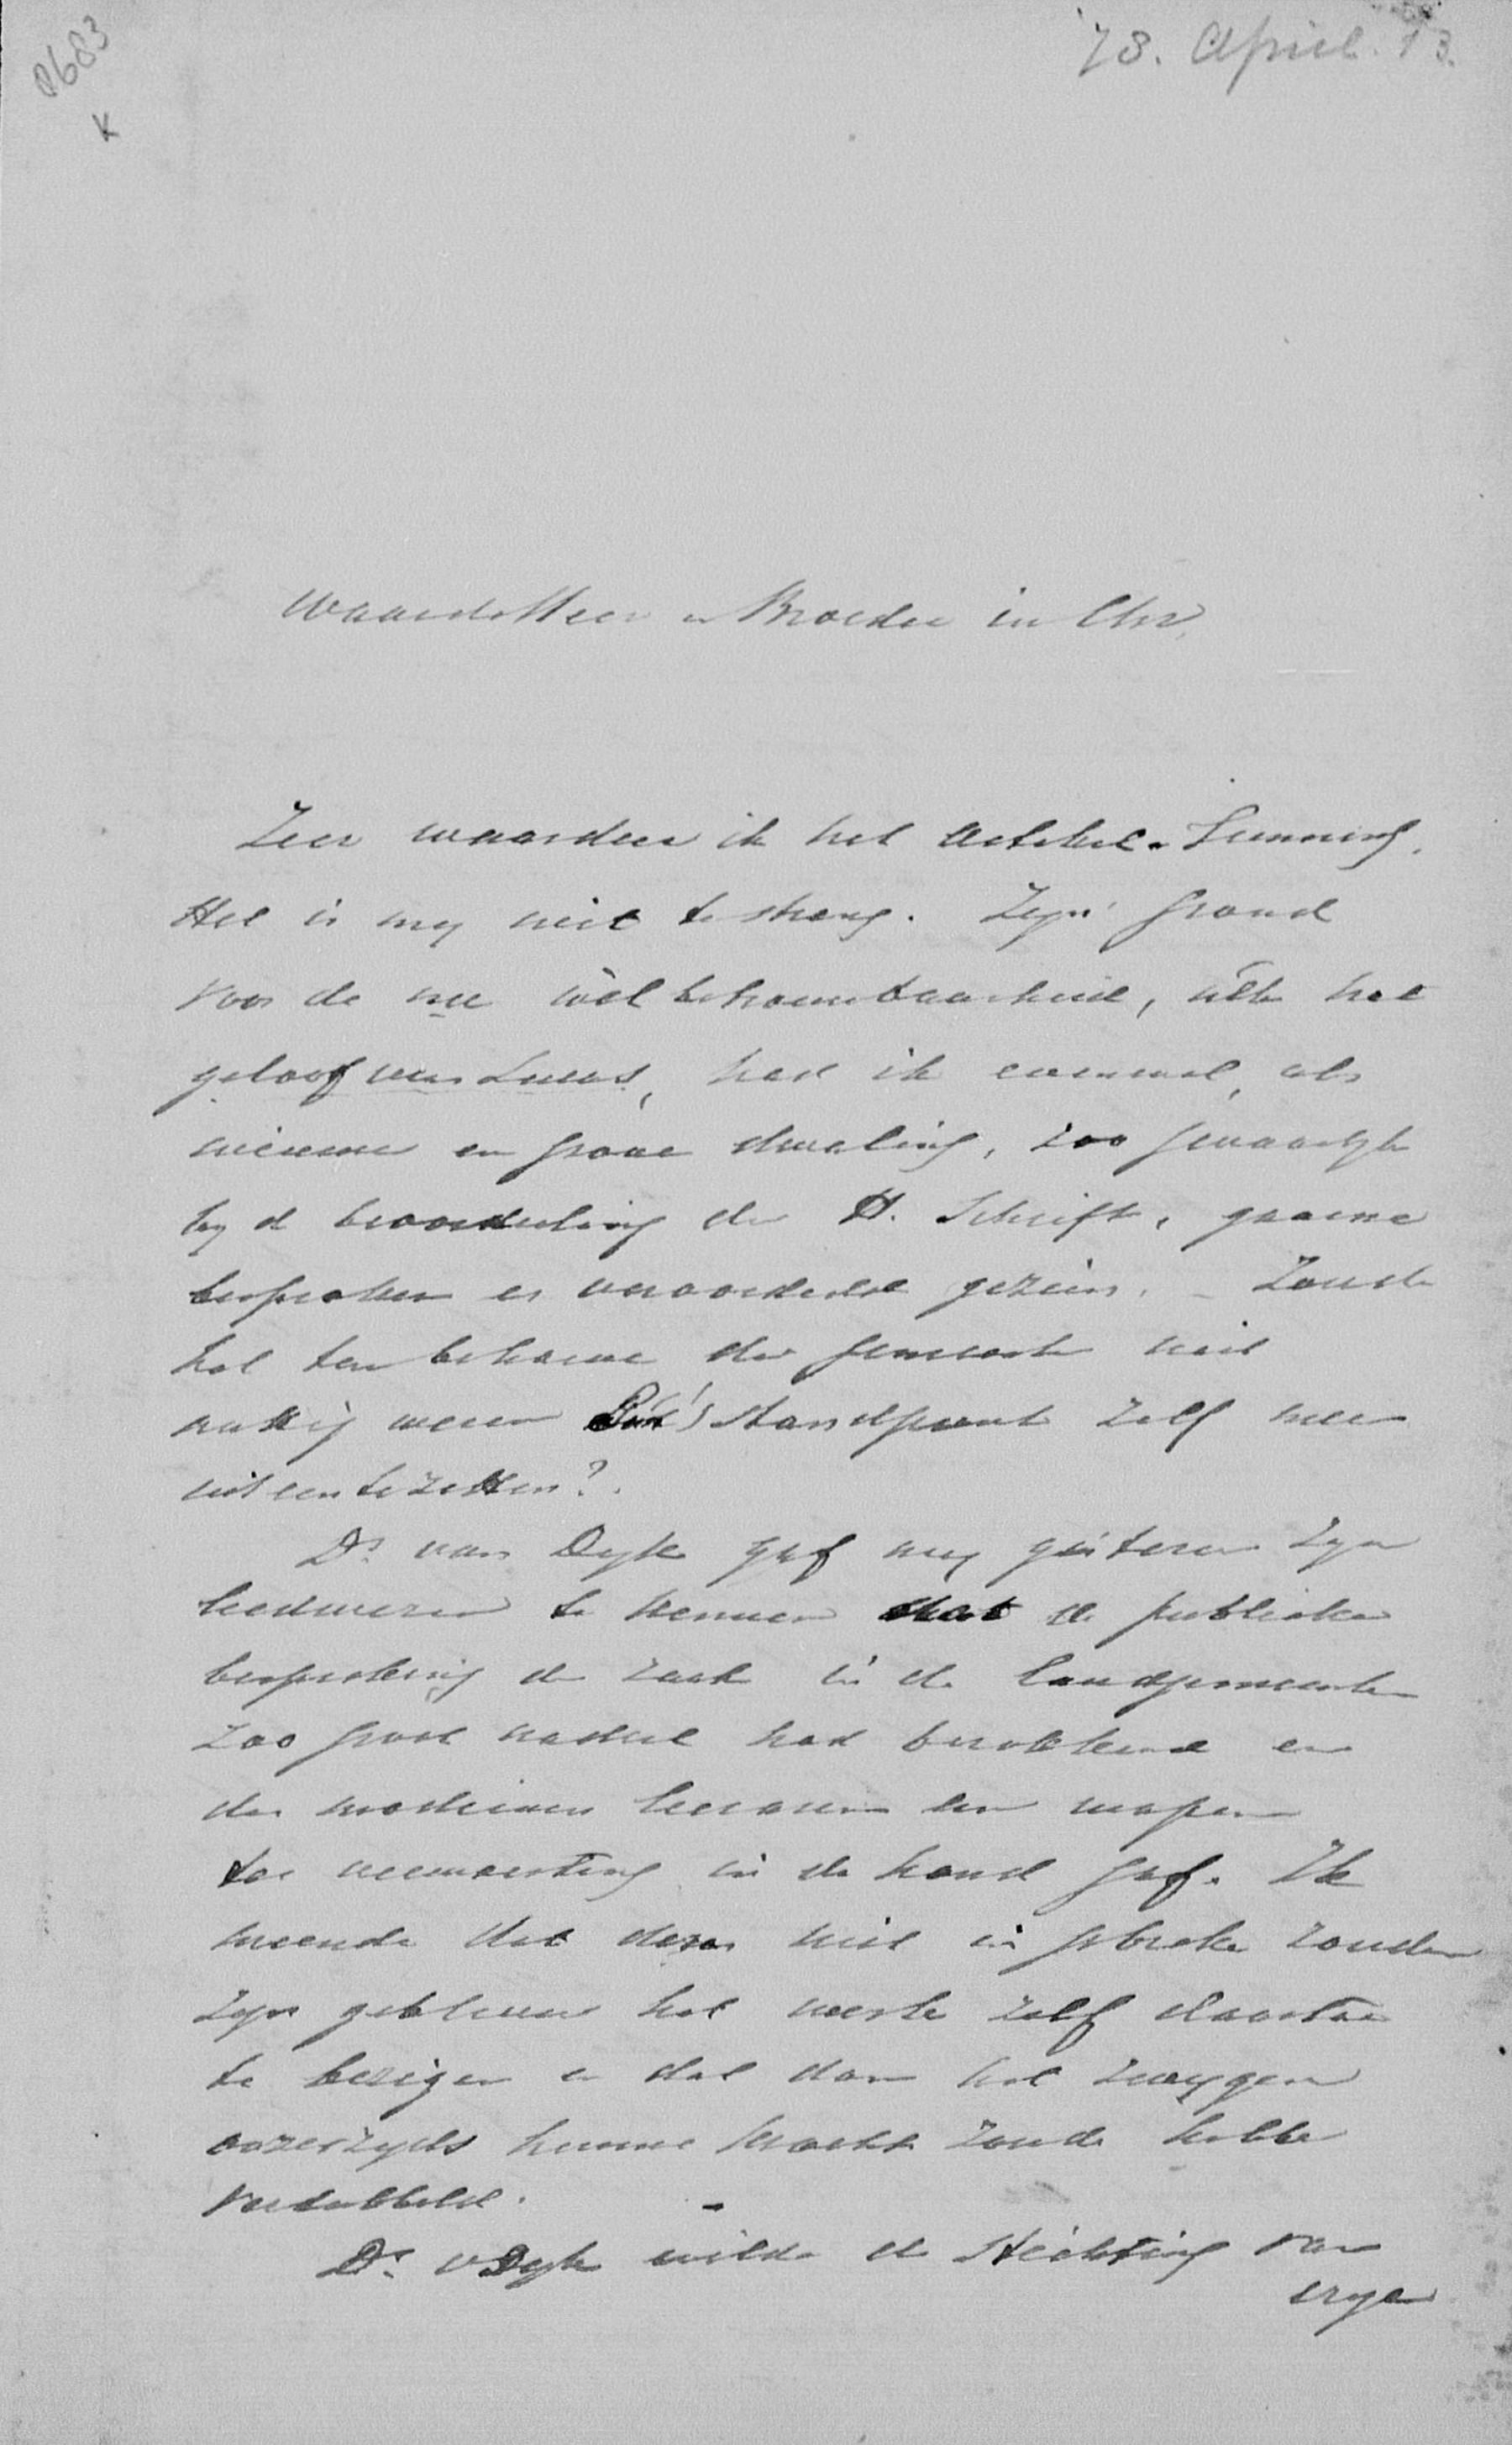 0683
K
73. April. 13.
Waarde Heer en Broeder in Chr.
Zeer waardeer ik het Artikel. Gunning.
Het is my niet te streng. Zyn grond
voor de nu wèl betrouwbaarheid, het
geloof van Lucas, had ik evenwel, als
nieuwe en grove dwaling, zoo gevaarlyk
by de beoordeeling der H. Schrift, gaarne
besproken en veroordeeld gezien. – Zoude
het ten behoeve der gemeente niet
nuttig wezen standpunt zelf meer
uiteen te zetten?.
Ds. van Dyk gaf my gisteren zyn
leedwezen te kennen dat de publieke
bespreking der zaak in de landgemeenten
zoo groot nadeel had berokkend en
den modernen leeraren een wapen
ter in de hand gaf. Ik
meende dat dezen niet in gebreke zouden
zyn gebleven het werk zelf daartoe
te bezigen en dat dan het zwygen
onzerzyds hunne kracht zoude hebben
verdubbeld. –
Ds. v Dyk wilde de Stichting van
eryen